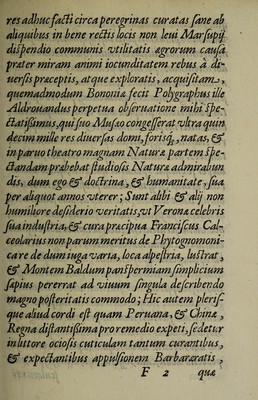 res adhuc facti circa peregrinas curatas sane ab
aliquibus in bene rectis locis non leui Marsupij
dispendio communis vtilitatis agrorum causa
prater miram animi iocunditatem rebus à di-
uersis praeceptis, atque exploratis, acquisitam,
quemadmodum Bononiæ fecit Polygraphus ille
Aldrouandus perpetua obseruatione mihi spe-
ctatissimus, qui suo Musæo congesserat vltra quin
decim mille res diuersas domi, forisq́, natas, &
in paruo theatro magnam Naturæ partem spe-
ctandam præbebat studiosis Naturæ admirabun
dis, dum ego & doctrina, & humanitate, sua
per aliquot annos vterer; Sunt alibi & alij non
humiliore desiderio veritatis, vt Veronæ celebris
sua industria, & cura præcipua Franciscus Cal-
ceolarius non parum meritus de Phytognomoni-
ca re de dum iuga varia, loca alpestria, lustrat,
& Montem Baldum panspermiam simplicium
sæpius pererrat ad viuum singula describendo
magno posteritatis commodo; Hic autem plerisq-
que aliud cordi est quam Peruana, & Chinæ,
Regna distantissima pro remedio expeti, sedetur
in littore ociosis cuticulam tantum curantibus,
& expectantibus appulsionem Barbararatis,
F 2 quæ